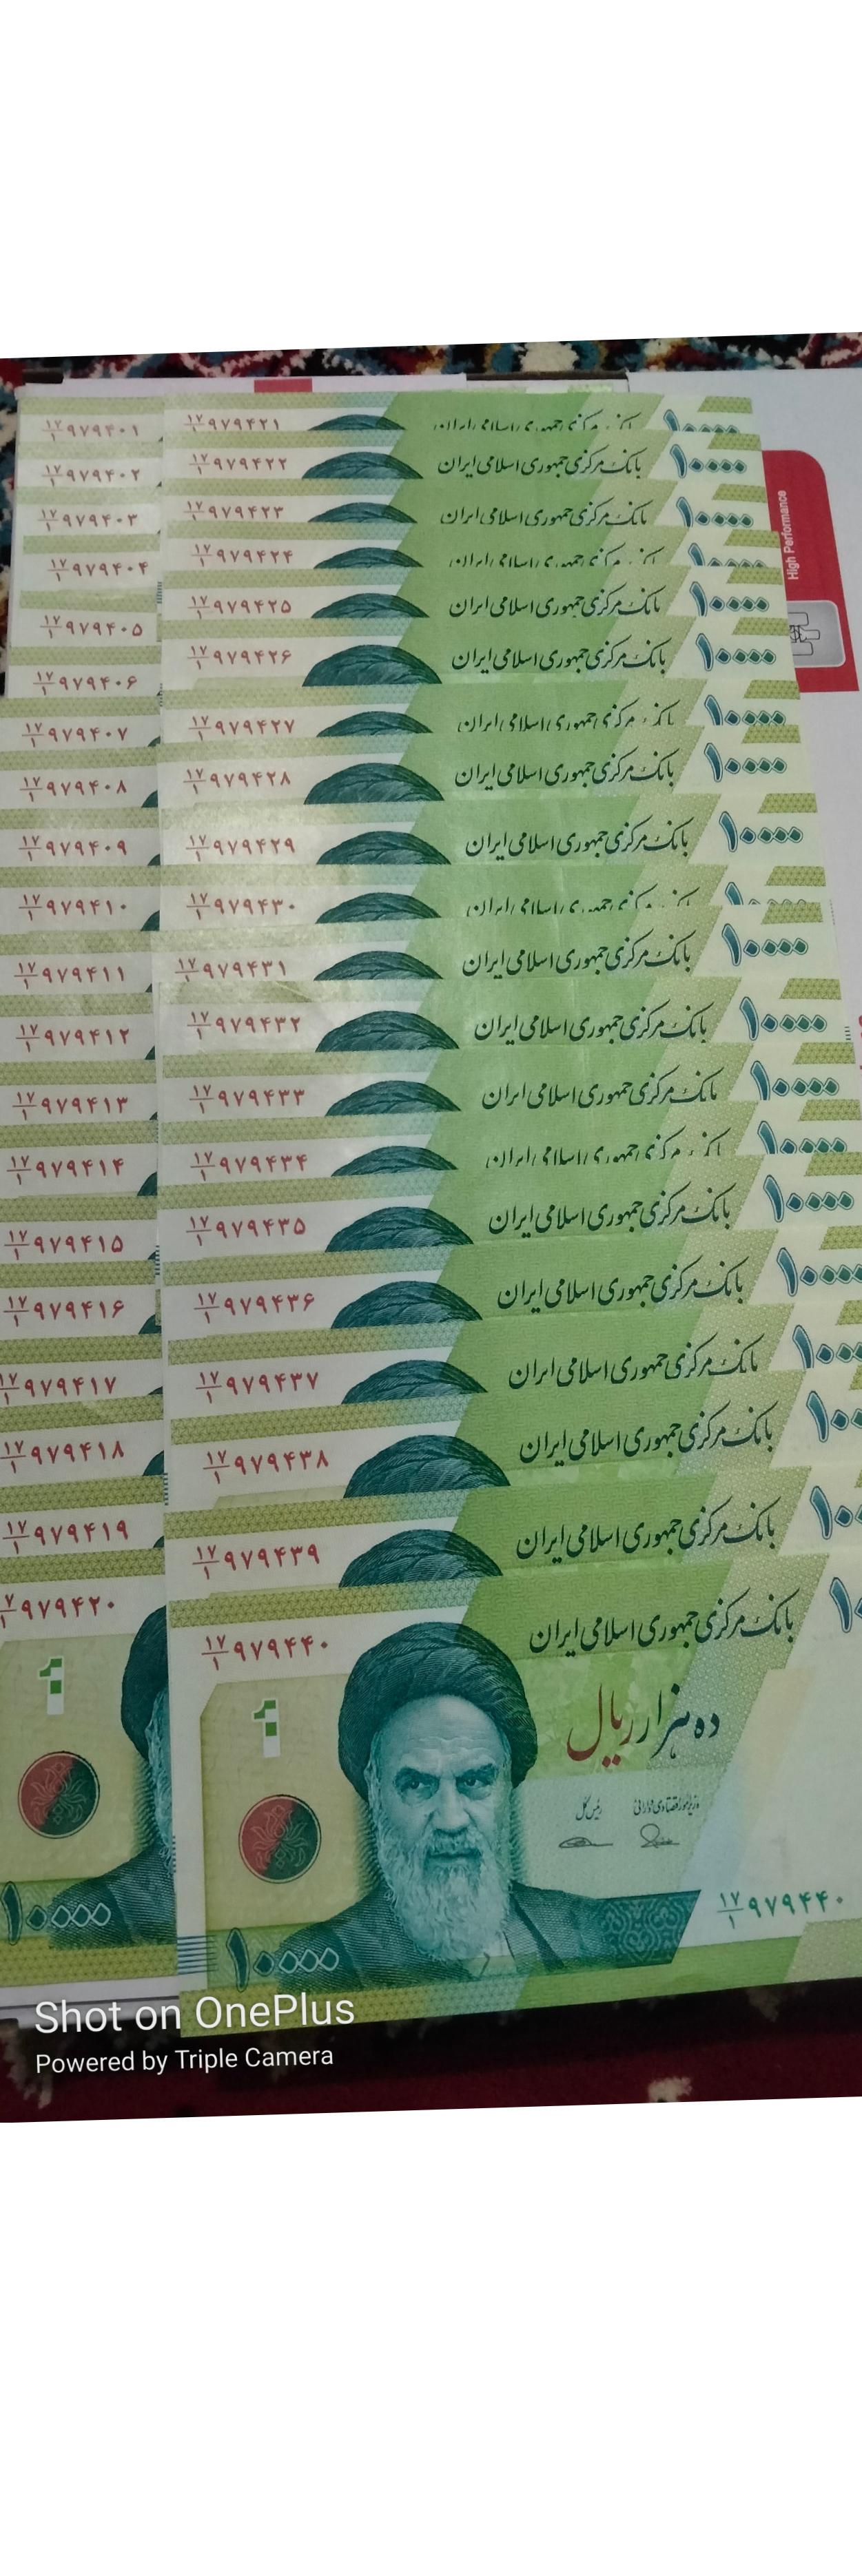 ۱۷/۱ ۹۷۹۴۰۱
۱۷/۱ ۹۷۹۴۰۲
۱۷/۱ ۹۷۹۴۰۳
۱۷/۱ ۹۷۹۴۰۴
۱۷/۱ ۹۷۹۴۰۵
۱۷/۱ ۹۷۹۴۰۶
۱۷/۱ ۹۷۹۴۰۷
۱۷/۱ ۹۷۹۴۰۸
۱۷/۱ ۹۷۹۴۰۹
۱۷/۱ ۹۷۹۴۱۰
۱۷/۱ ۹۷۹۴۱۱
۱۷/۱ ۹۷۹۴۱۲
۱۷/۱ ۹۷۹۴۱۳
۱۷/۱ ۹۷۹۴۱۴
۱۷/۱ ۹۷۹۴۱۵
۱۷/۱ ۹۷۹۴۱۶
۱۷/۱ ۹۷۹۴۱۷
۱۷/۱ ۹۷۹۴۱۸
۱۷/۱ ۹۷۹۴۱۹
۷/۱ ۹۷۹۴۲۰
۱۰۰۰۰
۱۷/۱ ۹۷۹۴۲۱ بانک مرکزی جمهوری اسلامی ایران ۱۰۰۰۰
۱۷/۱ ۹۷۹۴۲۲ بانک مرکزی جمهوری اسلامی ایران ۱۰۰۰۰
۱۷/۱ ۹۷۹۴۲۳ بانک مرکزی جمهوری اسلامی ایران ۱۰۰۰۰
۱۷/۱ ۹۷۹۴۲۴ بانک مرکزی جمهوری اسلامی ایران ۱۰۰۰۰
۱۷/۱ ۹۷۹۴۲۵ بانک مرکزی جمهوری اسلامی ایران ۱۰۰۰۰
۱۷/۱ ۹۷۹۴۲۶ بانک مرکزی جمهوری اسلامی ایران ۱۰۰۰۰
۱۷/۱ ۹۷۹۴۲۷ بانک مرکزی جمهوری اسلامی ایران ۱۰۰۰۰
۱۷/۱ ۹۷۹۴۲۸ بانک مرکزی جمهوری اسلامی ایران ۱۰۰۰۰
۱۷/۱ ۹۷۹۴۲۹ بانک مرکزی جمهوری اسلامی ایران ۱۰۰۰۰
۱۷/۱ ۹۷۹۴۳۰ بانک مرکزی جمهوری اسلامی ایران ۱۰۰۰۰
۱۷/۱ ۹۷۹۴۳۱ بانک مرکزی جمهوری اسلامی ایران ۱۰۰۰۰
۱۷/۱ ۹۷۹۴۳۲ بانک مرکزی جمهوری اسلامی ایران ۱۰۰۰۰
۱۷/۱ ۹۷۹۴۳۳ بانک مرکزی جمهوری اسلامی ایران ۱۰۰۰۰
۱۷/۱ ۹۷۹۴۳۴ بانک مرکزی جمهوری اسلامی ایران ۱۰۰۰۰
۱۷/۱ ۹۷۹۴۳۵ بانک مرکزی جمهوری اسلامی ایران ۱۰۰۰۰
۱۷/۱ ۹۷۹۴۳۶ بانک مرکزی جمهوری اسلامی ایران ۱۰۰۰۰
۱۷/۱ ۹۷۹۴۳۷ بانک مرکزی جمهوری اسلامی ایران ۱۰۰۰
۱۷/۱ ۹۷۹۴۳۸ بانک مرکزی جمهوری اسلامی ایران ۱۰۰
۱۷/۱ ۹۷۹۴۳۹ بانک مرکزی جمهوری اسلامی ایران ۱۰۰
۱۷/۱ ۹۷۹۴۴۰ بانک مرکزی جمهوری اسلامی ایران ۱۰
ده هزار ریال
وزیر امور اقتصادی و دارائی رئیس کل
۱۷/۱ ۹۷۹۴۴۰
۱۰۰۰۰
High Performance
Shot on OnePlus
Powered by Triple Camera